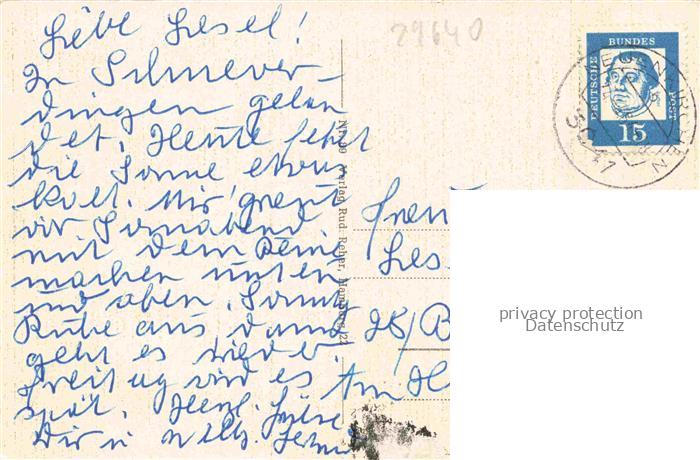 Liebe Liesel!
In Schnever-
dingen gelan
det. Heute fehlt
die Sonne etwas
kalt. Mir graut
vor Sonnabend
mit dem Reine
machen unten
und oben. Sonntag
Ruhe aus dann
geht es wieder.
Freitag wird es
spät. Herzl. Grüße
Dir u.
29640
DEUTSCHE BUNDES POST
15
NR. Verlag Rud. Reher, Hamburg 22
Frau
Lies
28/B
Am H
privacy protection
Datenschutz